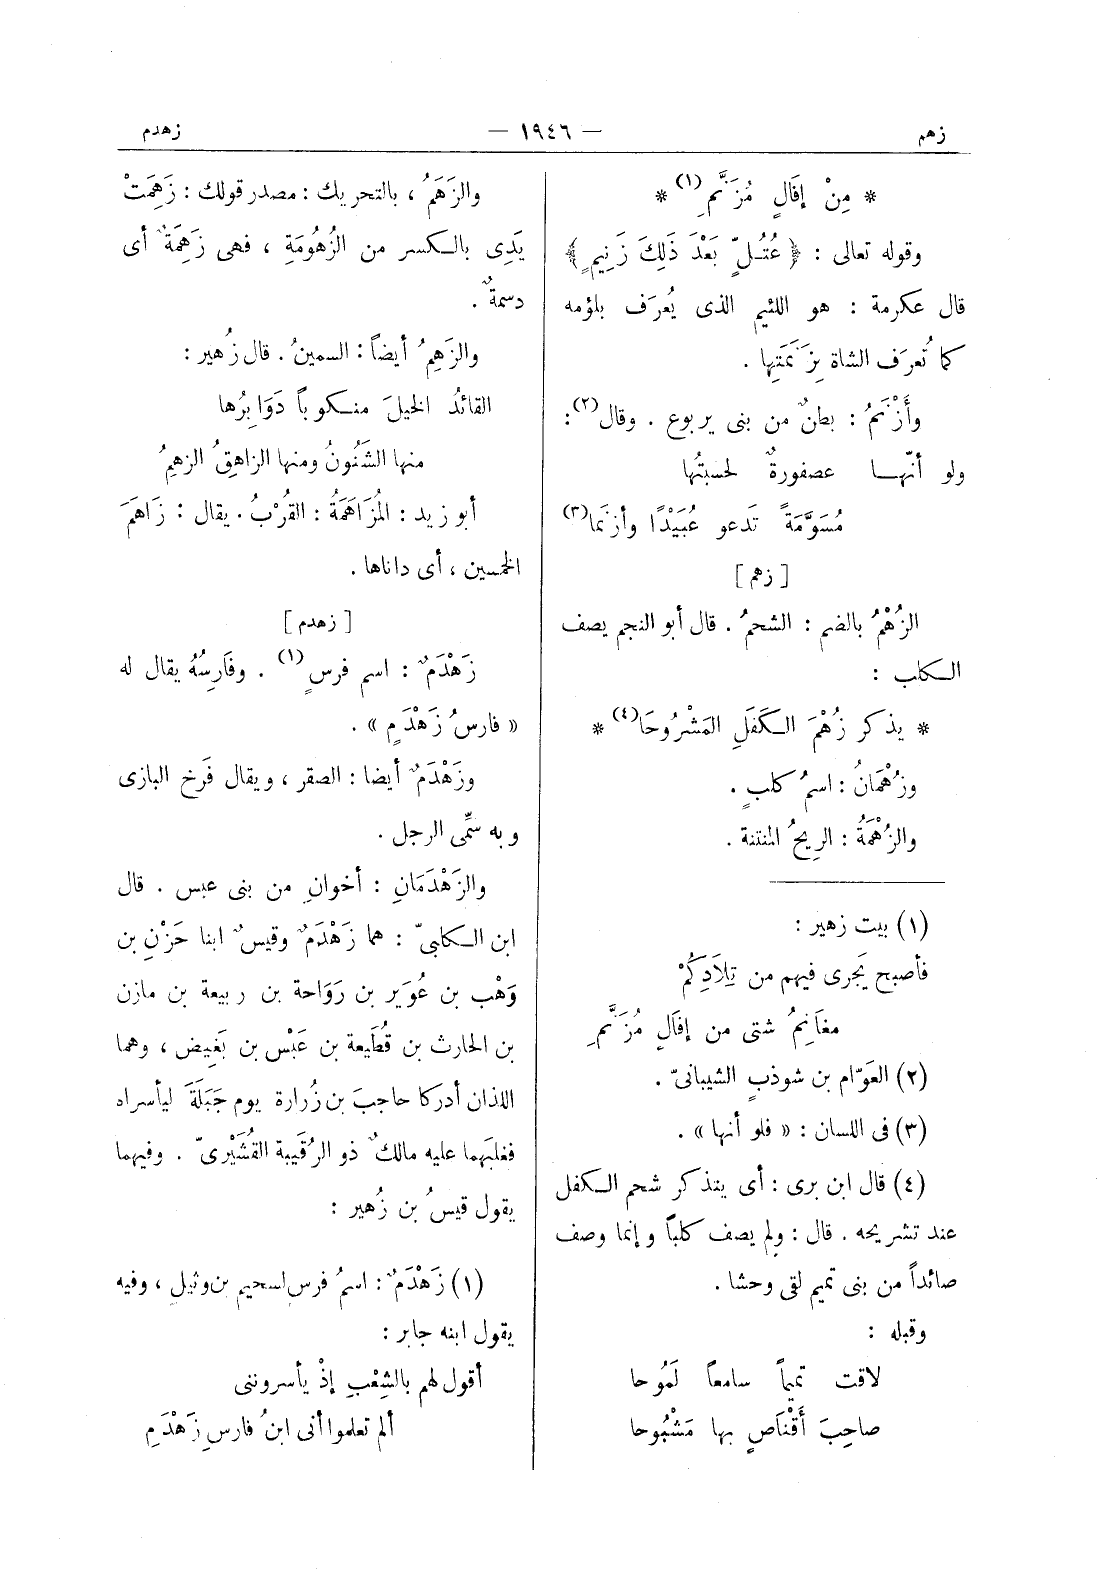 زهم
— ١٩٤٦ —
زهدم
* مِنْ إِفَالٍ مُزَنَّمِ (١) *
وقوله تعالى : ﴿ عُتُلٍّ بَعْدَ ذَلِكَ زَنِيمٍ ﴾
قال عكرمة : هو اللئيم الذى يُعرَف بلؤمه
كما تُعرَف الشاة بِزَنَمَتِها .
وأَزْنَمُ : بطنٌ من بنى يربوع . وقال (٢) :
ولو أنّهـا عصفورةٌ لحسبتُها
مُسَوَّمَةً تَدعو عُبَيْدًا وأزنَما (٣)
[ زهم ]
الزُهْمُ بالضم : الشحمُ . قال أبو النجم يصف
الكلب :
* يذكر زُهْمَ الكَفَلِ المَشْرُوحَا (٤) *
وزُهْمَانُ : اسمُ كلبٍ .
والزُهْمَةُ : الريحُ المنتنة .
(١) بيت زهير :
فأصبح يَجرى فيهم من تِلَادِكُمْ
مغانِمُ شتى من إفَالٍ مُزَنَّمِ
(٢) العَوّام بن شوذبٍ الشيبانىّ .
(٣) فى اللسان : « فلو أنها » .
(٤) قال ابن برى : أى يتذكر شحم الكفل
عند تشريحه . قال : ولم يصف كلباً وإنما وصف
صائداً من بنى تميم لقى وحشا .
وقبله :
لاقت تميماً سامعاً لَمُوحا
صاحِبَ أَقْنَاصٍ بها مَشْبُوحا
والزَهَمُ ، بالتحريك : مصدر قولك : زَهِمَتْ
يَدِى بالكسر من الزُهُومَةِ ، فهى زَهِمَةٌ أى
دسمةٌ .
والزَهِمُ أيضاً : السمينُ . قال زُهير :
القائدُ الخيلَ منكوباً دَوَابِرُها
منها الشَنُونُ ومنها الزاهِقُ الزهِمُ
أبو زيد : المُزَاهَمَةُ : القُرْبُ . يقال : زَاهَمَ
الخمسين ، أى داناها .
[ زهدم ]
زَهْدَمٌ : اسم فرسٍ (١) . وفَارِسُهُ يقال له
« فارسُ زَهْدَمٍ » .
وزَهْدَمٌ أيضا : الصقر ، ويقال فَرخ البازى
وبه سمِّى الرجل .
والزَهْدَمَانِ : أخوانِ من بنى عبس . قال
ابن الكلبىّ : هما زَهْدَمٌ وقيسٌ ابنا حَزْنِ بن
وَهْب بن عُوَير بن رَوَاحة بن ربيعة بن مازن
بن الحارث بن قُطَيعة بن عَبْس بن بَغِيض ، وهما
اللذان أدركا حاجبَ بن زُرارة يوم جَبَلَةَ ليأسراه
فغلبَهما عليه مالكٌ ذو الرُقَيبة القُشَيْرىّ . وفيهما
يقول قيسُ بن زُهير :
(١) زَهْدَمٌ : اسمُ فرسٍ لسحيم بن وثيلٍ ، وفيه
يقول ابنه جابر :
أقول لهم بالشِعْبِ إذْ يأسروننى
ألم تعلموا أنى ابنُ فارسِ زَهْدَمِ